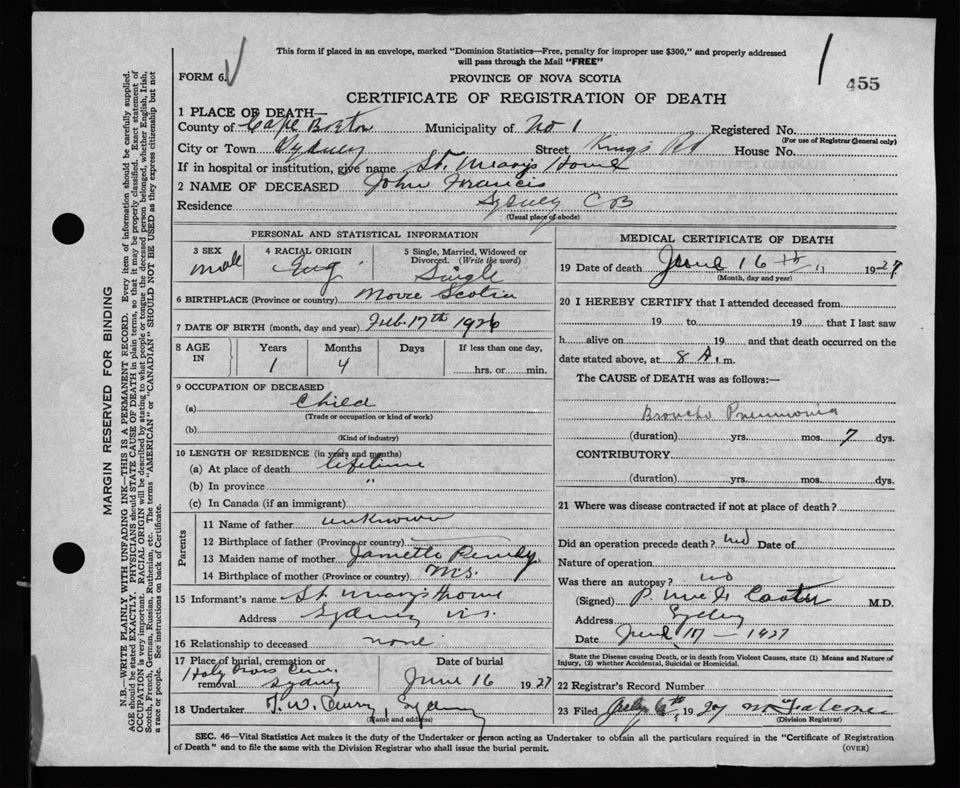 This form if placed in an envelope, marked "Dominion Statistics—Free, penalty for improper use $300," and properly addressed
will pass through the Mail "FREE"
FORM 6.
1
455
PROVINCE OF NOVA SCOTIA
CERTIFICATE OF REGISTRATION OF DEATH
1 PLACE OF DEATH—
County of Cape Breton Municipality of No 1 Registered No.
(For use of Registrar General only)
City or Town Sydney Street Kings Rd House No.
If in hospital or institution, give name St. Mary's Home
2 NAME OF DECEASED John Francis
Residence Sydney CB
(Usual place of abode)
PERSONAL AND STATISTICAL INFORMATION
3 SEX male
4 RACIAL ORIGIN Eng.
5 Single, Married, Widowed or Divorced. (Write the word) Single
6 BIRTHPLACE (Province or country) Nova Scotia
7 DATE OF BIRTH (month, day and year) Feb. 17th 1926
8 AGE IN Years Months Days If less than one day,
1 4 hrs. or min.
9 OCCUPATION OF DECEASED
(a) Child
(Trade or occupation or kind of work)
(b)
(Kind of industry)
10 LENGTH OF RESIDENCE (in years and months)
(a) At place of death lifetime
(b) In province "
(c) In Canada (if an immigrant)
Parents
11 Name of father unknown
12 Birthplace of father (Province or country)
13 Maiden name of mother
14 Birthplace of mother (Province or country) N.S.
15 Informant's name St. Mary's Home
Address Sydney N.S.
16 Relationship to deceased none
17 Place of burial, cremation or removal Holy Cross Cem. Sydney
Date of burial June 16 1927
18 Undertaker Sydney
(Name and address)
MEDICAL CERTIFICATE OF DEATH
19 Date of death June 16th 1927
(Month, day and year)
20 I HEREBY CERTIFY that I attended deceased from
19 to 19 that I last saw
h alive on 19 and that death occurred on the
date stated above, at 8 A. m.
The CAUSE of DEATH was as follows:—
Broncho Pneumonia
(duration) yrs. mos. 7 dys.
CONTRIBUTORY.
(duration) yrs. mos. dys.
21 Where was disease contracted if not at place of death?
Did an operation precede death? no Date of
Nature of operation
Was there an autopsy? no
(Signed) M.D.
Address Sydney
Date June 17 - 1927
State the Disease causing Death, or in death from Violent Causes, state (1) Means and Nature of
Injury, (2) whether Accidental, Suicidal or Homicidal.
22 Registrar's Record Number
23 Filed July 6th, 1927
(Division Registrar)
SEC. 46—Vital Statistics Act makes it the duty of the Undertaker or person acting as Undertaker to obtain all the particulars required in the "Certificate of Registration
of Death" and to file the same with the Division Registrar who shall issue the burial permit.
(OVER)
MARGIN RESERVED FOR BINDING
N.B.—WRITE PLAINLY WITH UNFADING INK—THIS IS A PERMANENT RECORD. Every item of information should be carefully supplied.
AGE should be stated EXACTLY. PHYSICIANS should STATE CAUSE OF DEATH in plain terms, so that it may be properly classified. Exact statement of
OCCUPATION is very important. RACIAL ORIGIN will be described by stating to what people or tongue the deceased person belonged, whether English, Irish,
Scotch, French, German, Russian, Ruthenian, etc. The terms "AMERICAN" or "CANADIAN" SHOULD NOT BE USED as they express citizenship but not
a race or people. See instructions on back of Certificate.